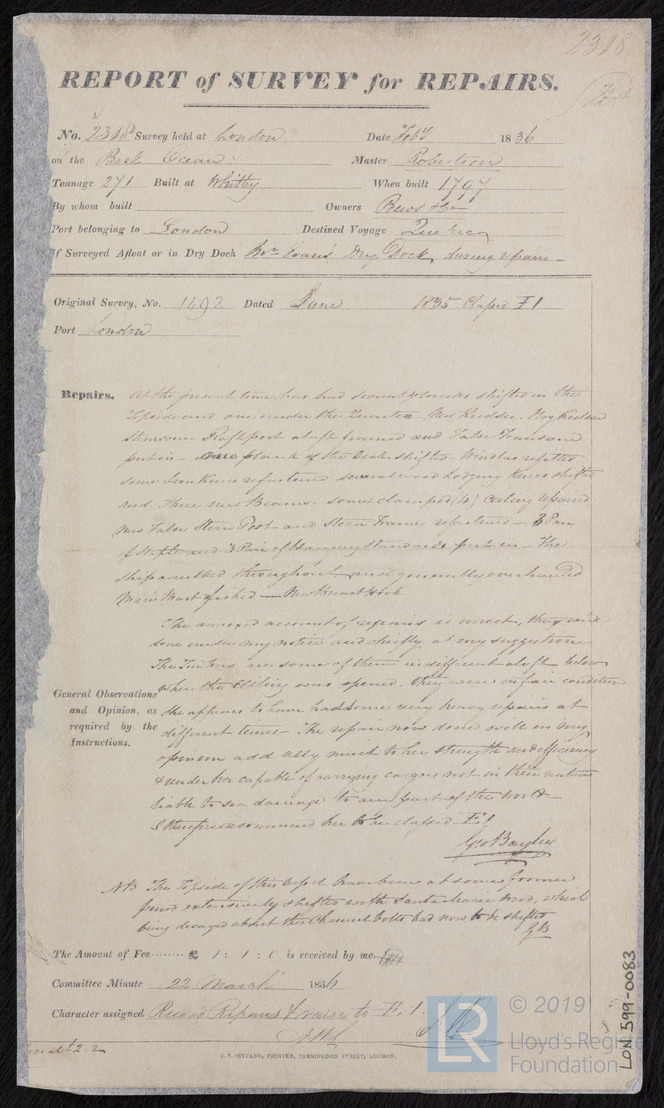 2318
REPORT of SURVEY for REPAIRS.
No. 2318 Survey held at London Date Feby 1836
on the Bark Ocean Master Robertson
Tonnage 271 Built at Whitby When built 1797
By whom built Owners
Port belonging to London Destined Voyage Quebec
If Surveyed Afloat or in Dry Dock Mr Evans Dry Dock, during repair
Original Survey, No. 1492 Dated June 1835 Classed E1
Port London
Repairs. At the present time has had several planks shifted in the
Topside and one under the Quarter New Rudder.
Sternson aft framed and False Transom
put in - plank of the Deck shifted. Windlass refitted
some Iron knees refastened several wood Lodging knees shifted
and Three new Beams. some clamps (4) Ceiling repaired
New False Stern Post and Stern Frame refastened - 3 Pair
of Staple and 3 Pair of Hanging Standards put in - The
ship caulked throughout and generally overhauled
Main Mast fished - New Breast Hook
The annexed account of repairs is correct, they were
done under my notice and chiefly at my suggestion
The Timbers are some of them indifferent aloft, below
where the Ceiling was opened, they were in fair condition
General Observations
and Opinion, as
required by the
Instructions.
She appears to have had some very heavy repairs at
different times - The repair now done will in my
opinion add very much to her strength and efficiency
& render her capable of carrying cargoes not in their nature
liable to sea damage to any part of the World -
I therefore recommend her to be classed E1
Geo Bayley
NB The Topside of this vessel have been at some former
period extensively shifted with Santa Maria Wood, which
being decayed about the Channel bolts had now to be shifted
GB
The Amount of Fee ........ £ 1 : 1 : 0 is received by me
Committee Minute 22 March 1836
Character assigned Record Repairs & raise to E.1.
C. F. SEYFANG, PRINTER, FARRINGDON STREET, LONDON.
LR
© 2019
Lloyd's Register
Foundation
LON 599-0083